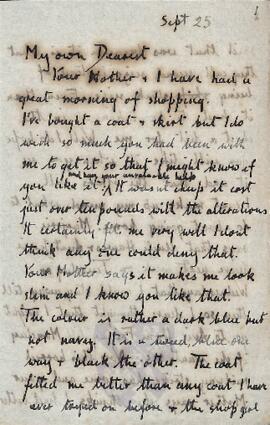 Sept 25
My own Dearest
Your Mother & I have had a
great morning of shopping.
I've bought a coat & skirt but I do
wish so much you had been with
me to get it so that I might know if
and have your invaluable help
you like it. It wasn't cheap it cost
just over ten pounds with the alterations
It certainly fits me very well I don't
think any one could deny that.
Your Mother says it makes me look
slim and I know you like that.
The colour is rather a dark blue but
not navy. It is a tweed, blue one
way & black the other. The coat
fitted me better than any coat I have
ever tryed on before & the shop girl